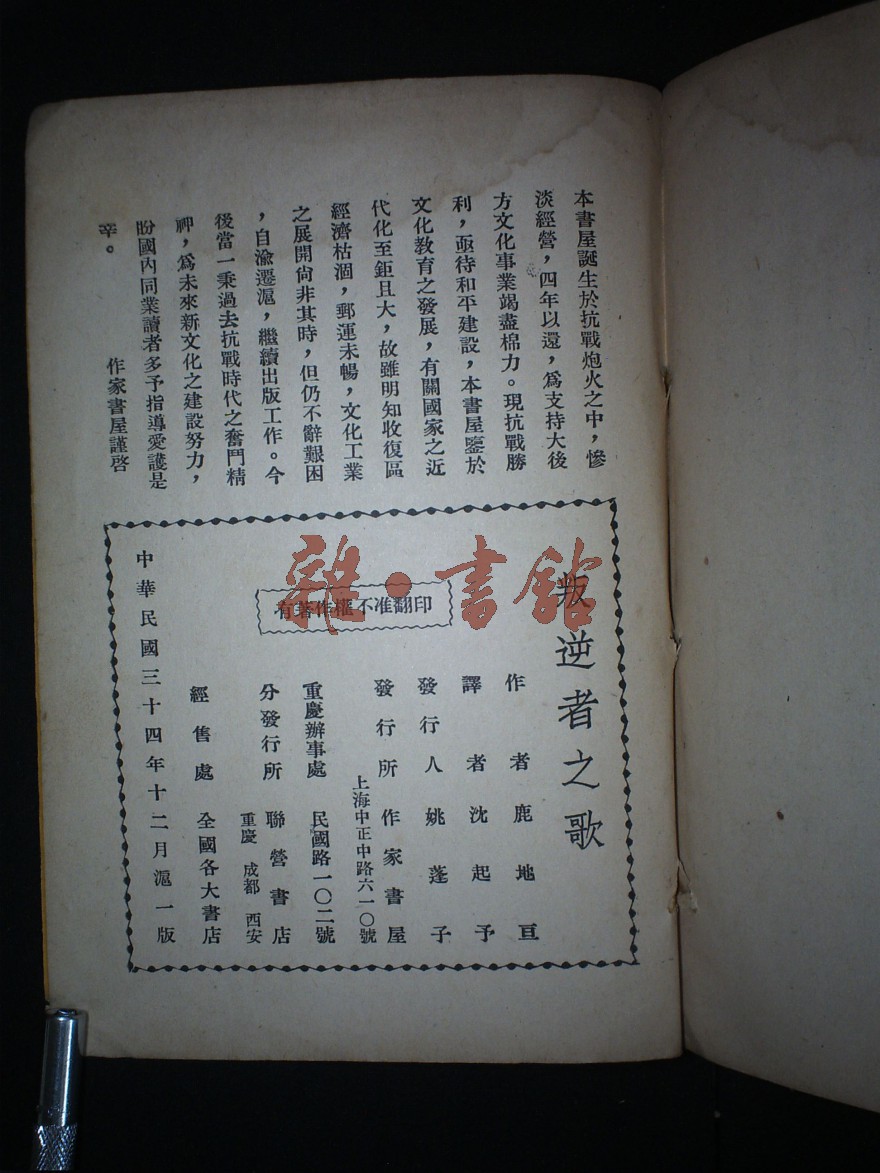 本書屋誕生於抗戰炮火之中，慘
淡經營，四年以還，爲支持大後
方文化事業竭盡棉力。現抗戰勝
利，亟待和平建設，本書屋鑒於
文化教育之發展，有關國家之近
代化至鉅且大，故雖明知收復區
經濟枯涸，郵運未暢，文化工業
之展開尚非其時，但仍不辭艱困
，自渝遷滬，繼續出版工作。今
後當一秉過去抗戰時代之奮鬥精
神，爲未來新文化之建設努力，
盼國內同業讀者多予指導愛護是
幸。
作家書屋謹啓
叛逆者之歌
作者鹿地亘
譯者沈起予
發行人姚蓬子
發行所作家書屋
上海中正中路六一〇號
重慶辦事處 民國路一〇二號
分發行所 聯營書店
重慶 成都 西安
經售處 全國各大書店
中華民國三十四年十二月滬一版
有著作權不准翻印
雜·書館